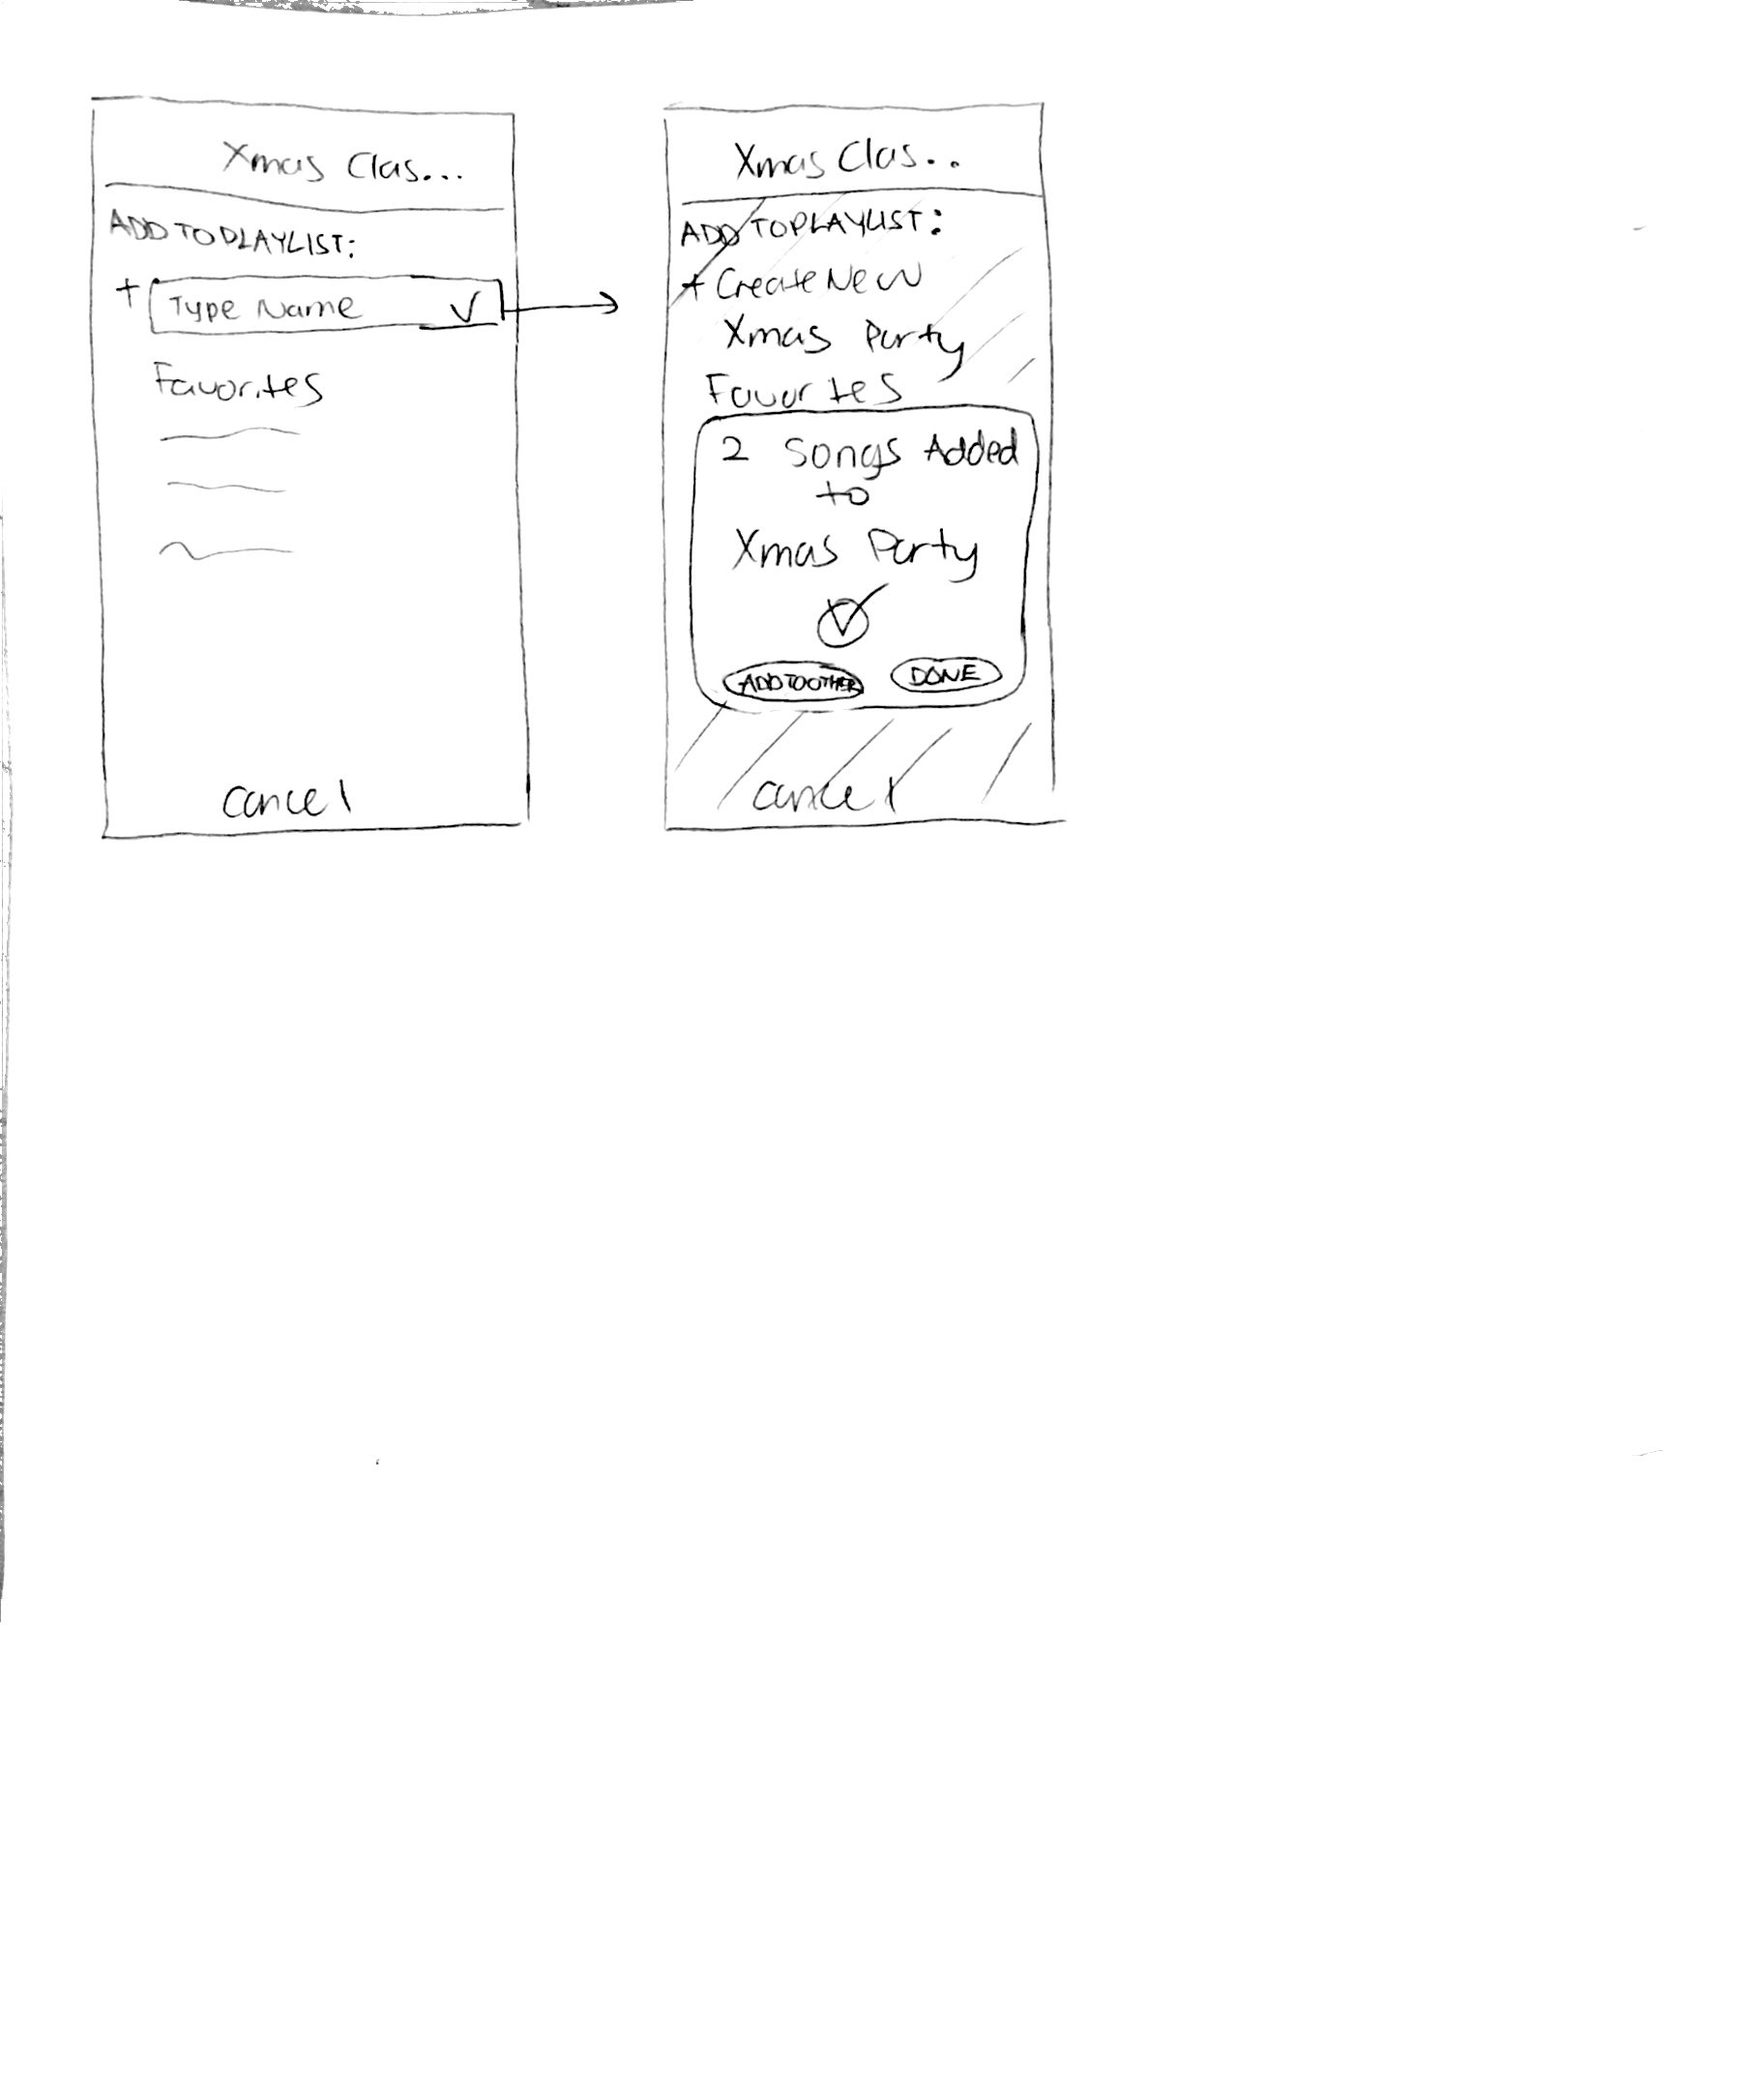 Xmas Clas...
ADD TO PLAYLIST:
+ Type Name ✓
Favorites
cancel
Xmas Clas..
ADD TO PLAYLIST:
+ Create New
Xmas Party
Favorites
2 Songs Added
to
Xmas Party
ADD TO OTHER DONE
cancel